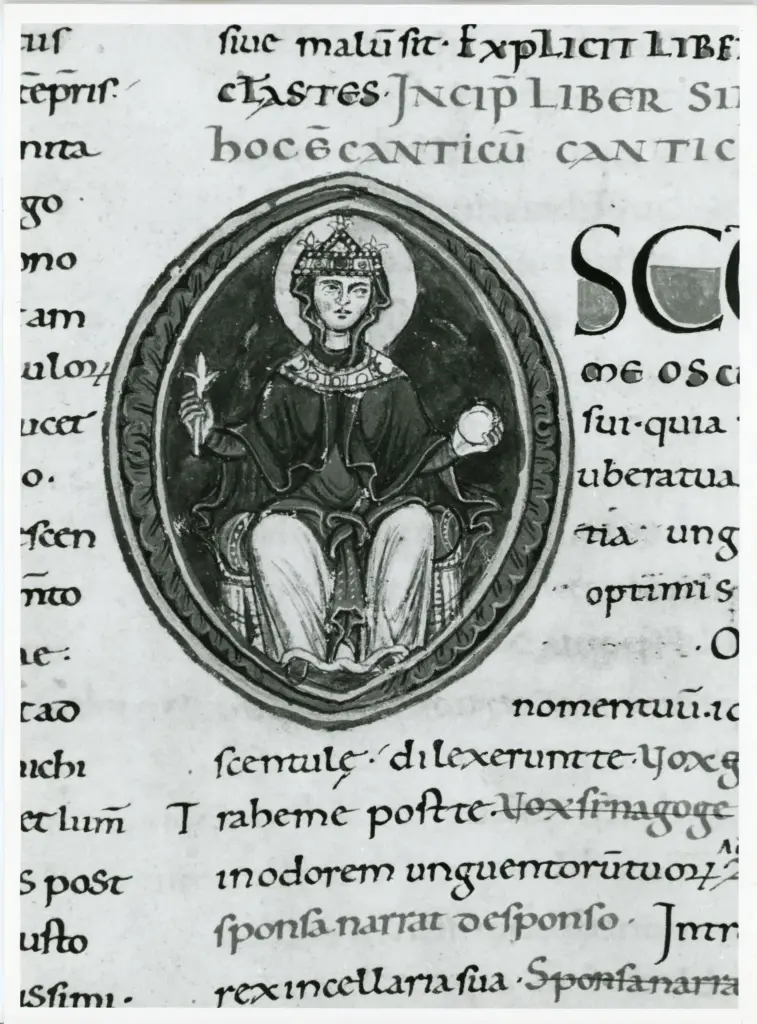 tus
cēpris.
nita
go
ono
am
uloꝝ
ucet
o.
scen
mto
ae.
tao
uichi
et lum̄
s post
usto
issimi.
siue malū sit. EXPLICIT LIBE
CLASTES. INCIP̄ LIBER SI
hoc ē CANTICŪ CANTIC
OSCU
me oscu
sui. quia
ubera tua
tia ung
optimis
O
nomen tuū. id
scentulę. dilexerunt te. Vox
Trahe me post te. Vox sinagoge
in odorem unguentorū tuoꝝ
sponsa narrat de sponso. Intr
rex in cellaria sua. Sponsa narra